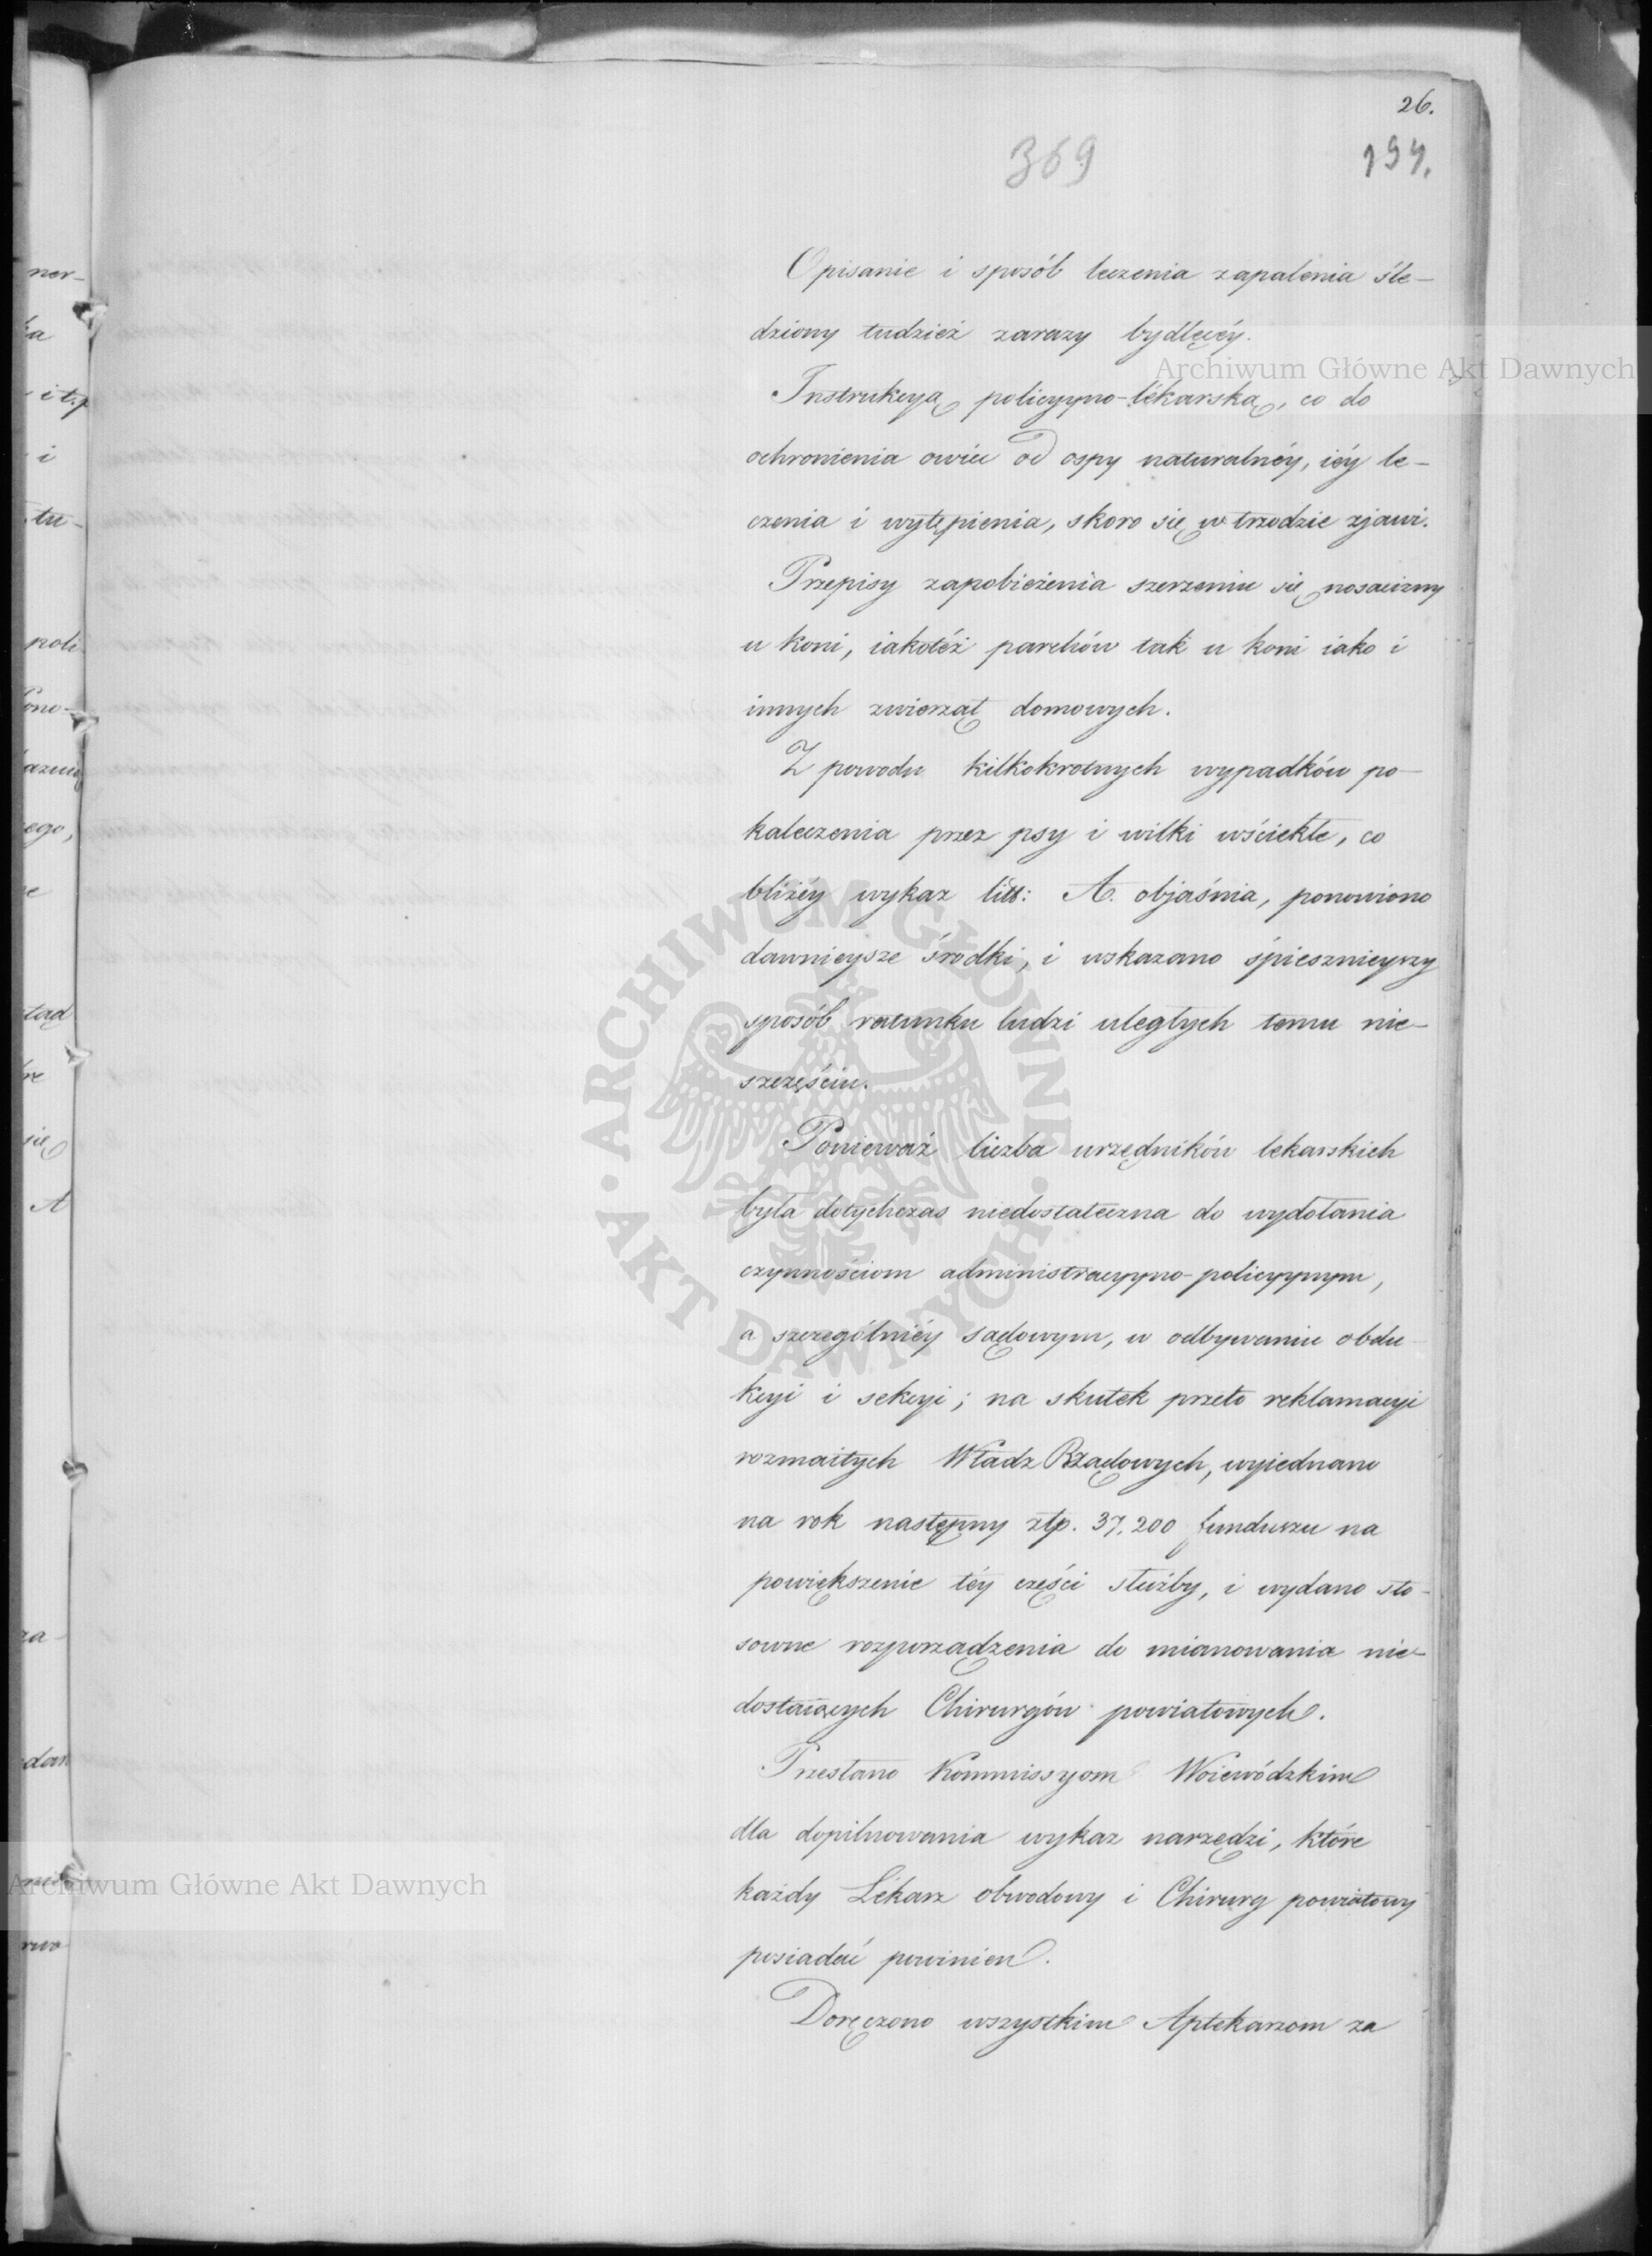 26.
369
194.
Opisanie i sposób leczenia zapalenia śle-
dziony tudzież zarazy bydlęcéy.
Instrukcyą policyyno-lékarską, co do
ochronienia owiec od ospy naturalnéy, iéy le-
czenia i wytępienia, skoro się w trzodzie zjawi.
Przepisy zapobieżenia szerzeniu się nosacizny
u koni, iakotéż parchów tak u koni iako i
innych zwierząt domowych.
Z powodu kilkokrotnych wypadków po-
kaleczenia przez psy i wilki wściekłe, co
bliżéy wykaz litt: A. objaśnia, ponowiono
dawnieysze środki, i wskazano śpiesznieyszy
sposób ratunku ludzi uległych temu nie-
szczęściu.
Ponieważ liczba urzędników lekarskich
była dotychczas niedostateczna do wydołania
czynnościom administracyyno-policyynym,
a szczególniéy sądowym, w odbywaniu obdu
kcyi i sekcyi; na skutek przeto reklamacyi
rozmaitych Władz Rządowych, wyiednano
na rok następny złp. 37,200 funduszu na
powiększenie téy części służby, i wydano sto-
sowne rozporządzenia do mianowania nie-
dostaiących Chirurgów powiatowych.
Przesłano Kommissyom Woiewódzkim
dla dopilnowania wykaz narzędzi, które
każdy Lékarz obwodowy i Chirurg powiatowy
posiadać powinien.
Doręczono wszystkim Aptekarzom za
ner-
ka
i t.p
i
tu-
poli
ego,
e
tąd
się
A
za-
dan
Archiwum Główne Akt Dawnych
Archiwum Główne Akt Dawnych
ARCHIWUM GŁÓWNE · AKT DAWNYCH ·